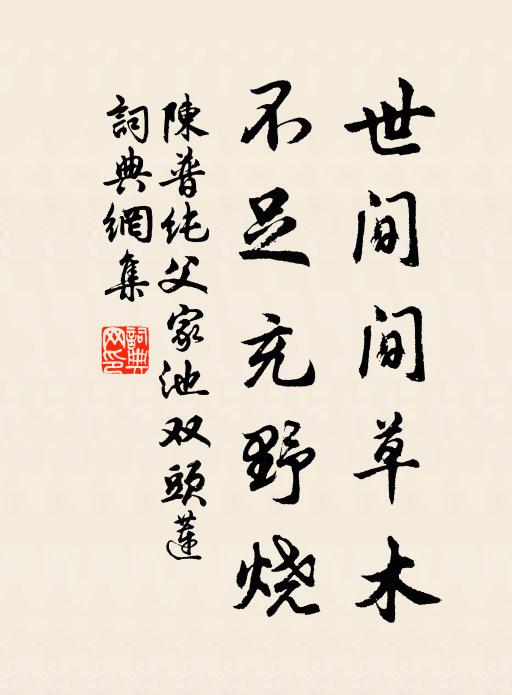 世间间草木
不足充野烧
陳普纯父家池双頭蓮
詞典網集
詞典
网印